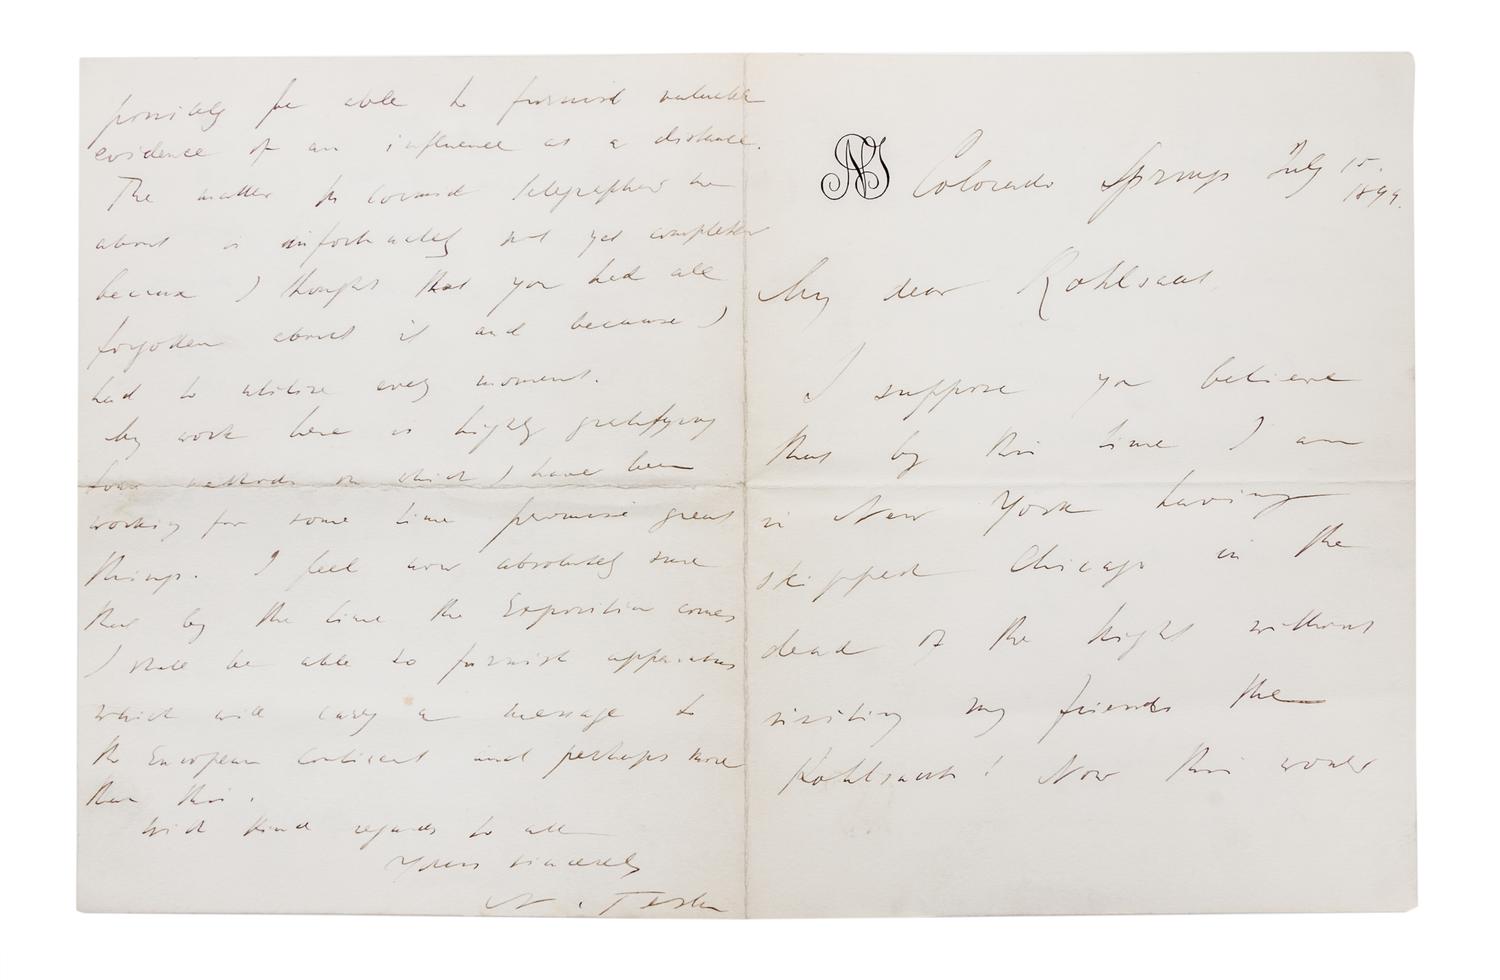 NT
Colorado Springs July 15.
1899.
My dear Kohlsaat,
I suppose you believe
that by this time I am
in New York having
skipped Chicago in the
dead of the night without
visiting my friends the
Kohlsaats! Now this would
possibly be able to furnish valuable
evidence of an influence at a distance.
The matter you
about is unfortunately not yet completed
because I thought that you had all
forgotten about it and because I
had to utilize every moment.
My work here is highly gratifying
methods on which I have been
working for some time promise great
things. I feel now absolutely sure
that by the time the Exposition comes
I shall be able to furnish apparatus
which will carry a message to
the European continent and perhaps more
than this.
With kind regards to all
Yours sincerely
N. Tesla